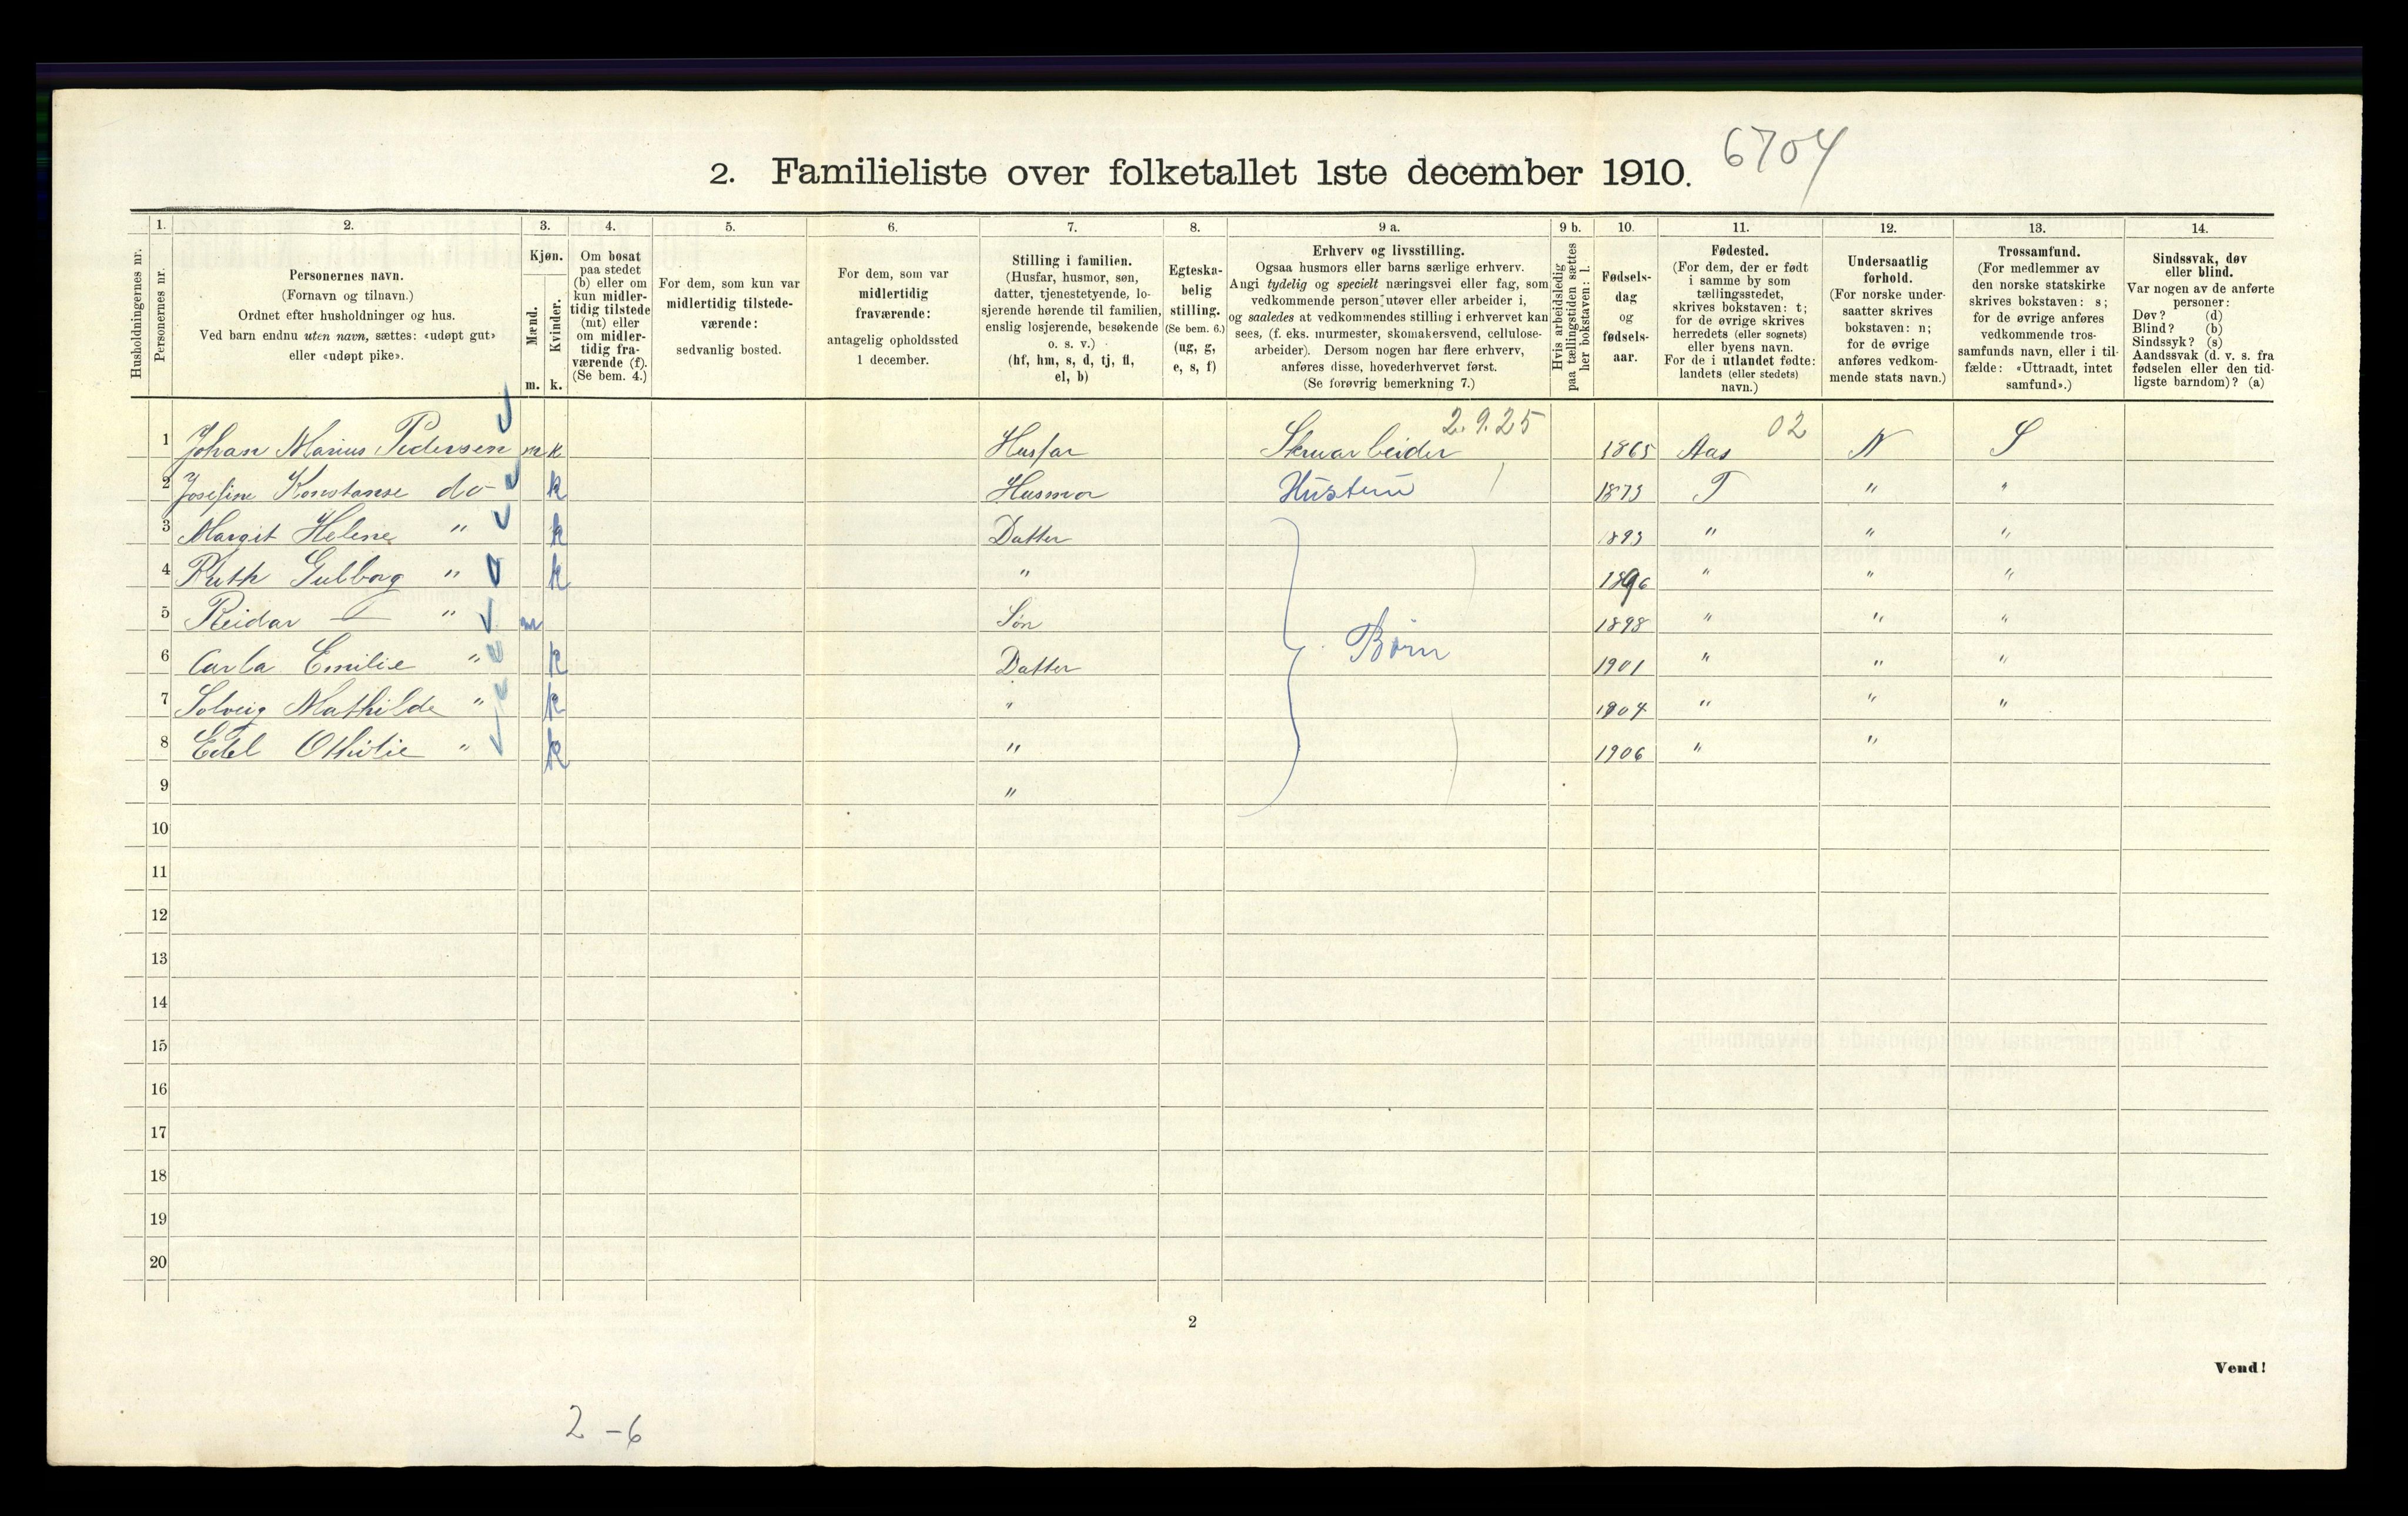 6704
2. Familieliste over folketallet 1ste december 1910.
1. 2. 3. 4. 5. 6. 7. 8. 9 a. 9 b. 10. 11. 12. 13. 14.
Husholdningernes nr.
Personernes nr.
Personernes navn.
(Fornavn og tilnavn.)
Ordnet efter husholdninger og hus.
Ved barn endnu uten navn, sættes: «udøpt gut»
eller «udøpt pike».
Kjøn.
Mænd.
m.
Kvinder.
k.
Om bosat
paa stedet
(b) eller om
kun midler-
tidig tilstede
(mt) eller
om midler-
tidig fra-
værende (f).
(Se bem. 4.)
For dem, som kun var
midlertidig tilstede-
værende:
sedvanlig bosted.
For dem, som var
midlertidig
fraværende:
antagelig opholdssted
1 december.
Stilling i familien.
(Husfar, husmor, søn,
datter, tjenestetyende, lo-
sjerende hørende til familien,
enslig losjerende, besøkende
o. s. v.)
(hf, hm, s, d, tj, fl,
el, b)
Egteska-
belig
stilling.
(Se bem. 6.)
(ug, g,
e, s, f)
Erhverv og livsstilling.
Ogsaa husmors eller barns særlige erhverv.
Angi tydelig og specielt næringsvei eller fag, som
vedkommende person utøver eller arbeider i,
og saaledes at vedkommendes stilling i erhvervet kan
sees, (f. eks. murmester, skomakersvend, cellulose-
arbeider). Dersom nogen har flere erhverv,
anføres disse, hovederhvervet først.
(Se forøvrig bemerkning 7.)
Hvis arbeidsledig
paa tællingstiden sættes
her bokstaven: l.
Fødsels-
dag
og
fødsels-
aar.
Fødested.
(For dem, der er født
i samme by som
tællingsstedet,
skrives bokstaven: t;
for de øvrige skrives
herredets (eller sognets)
eller byens navn.
For de i utlandet fødte:
landets (eller stedets)
navn.)
Undersaatlig
forhold.
(For norske under-
saatter skrives
bokstaven: n;
for de øvrige
anføres vedkom-
mende stats navn.)
Trossamfund.
(For medlemmer av
den norske statskirke
skrives bokstaven: s;
for de øvrige anføres
vedkommende tros-
samfunds navn, eller i til-
fælde: «Uttraadt, intet
samfund».)
Sindssvak, døv
eller blind.
Var nogen av de anførte
personer:
Døv? (d)
Blind? (b)
Sindssyk? (s)
Aandssvak (d. v. s. fra
fødselen eller den tid-
ligste barndom)? (a)
2.9.25 02
1 Johan Marius Pedersen m k Husfar Skruarbeider 1865 Aas N S
2 Josefine Konstanse do k Husmor Hustru 1873 T " "
3 Margit Helene " k Datter 1893 " " "
4 Ruth Gulborg " k " 1896 " " "
5 Reidar — " m Søn 1898 " " "
6 Carla Emilie " k Datter Børn 1901 " " "
7 Solveig Mathilde " k " 1904 " " "
8 Edel Othilie " k " 1906 " "
9 "
10
11
12
13
14
15
16
17
18
19
20
2
Vend!
2-6